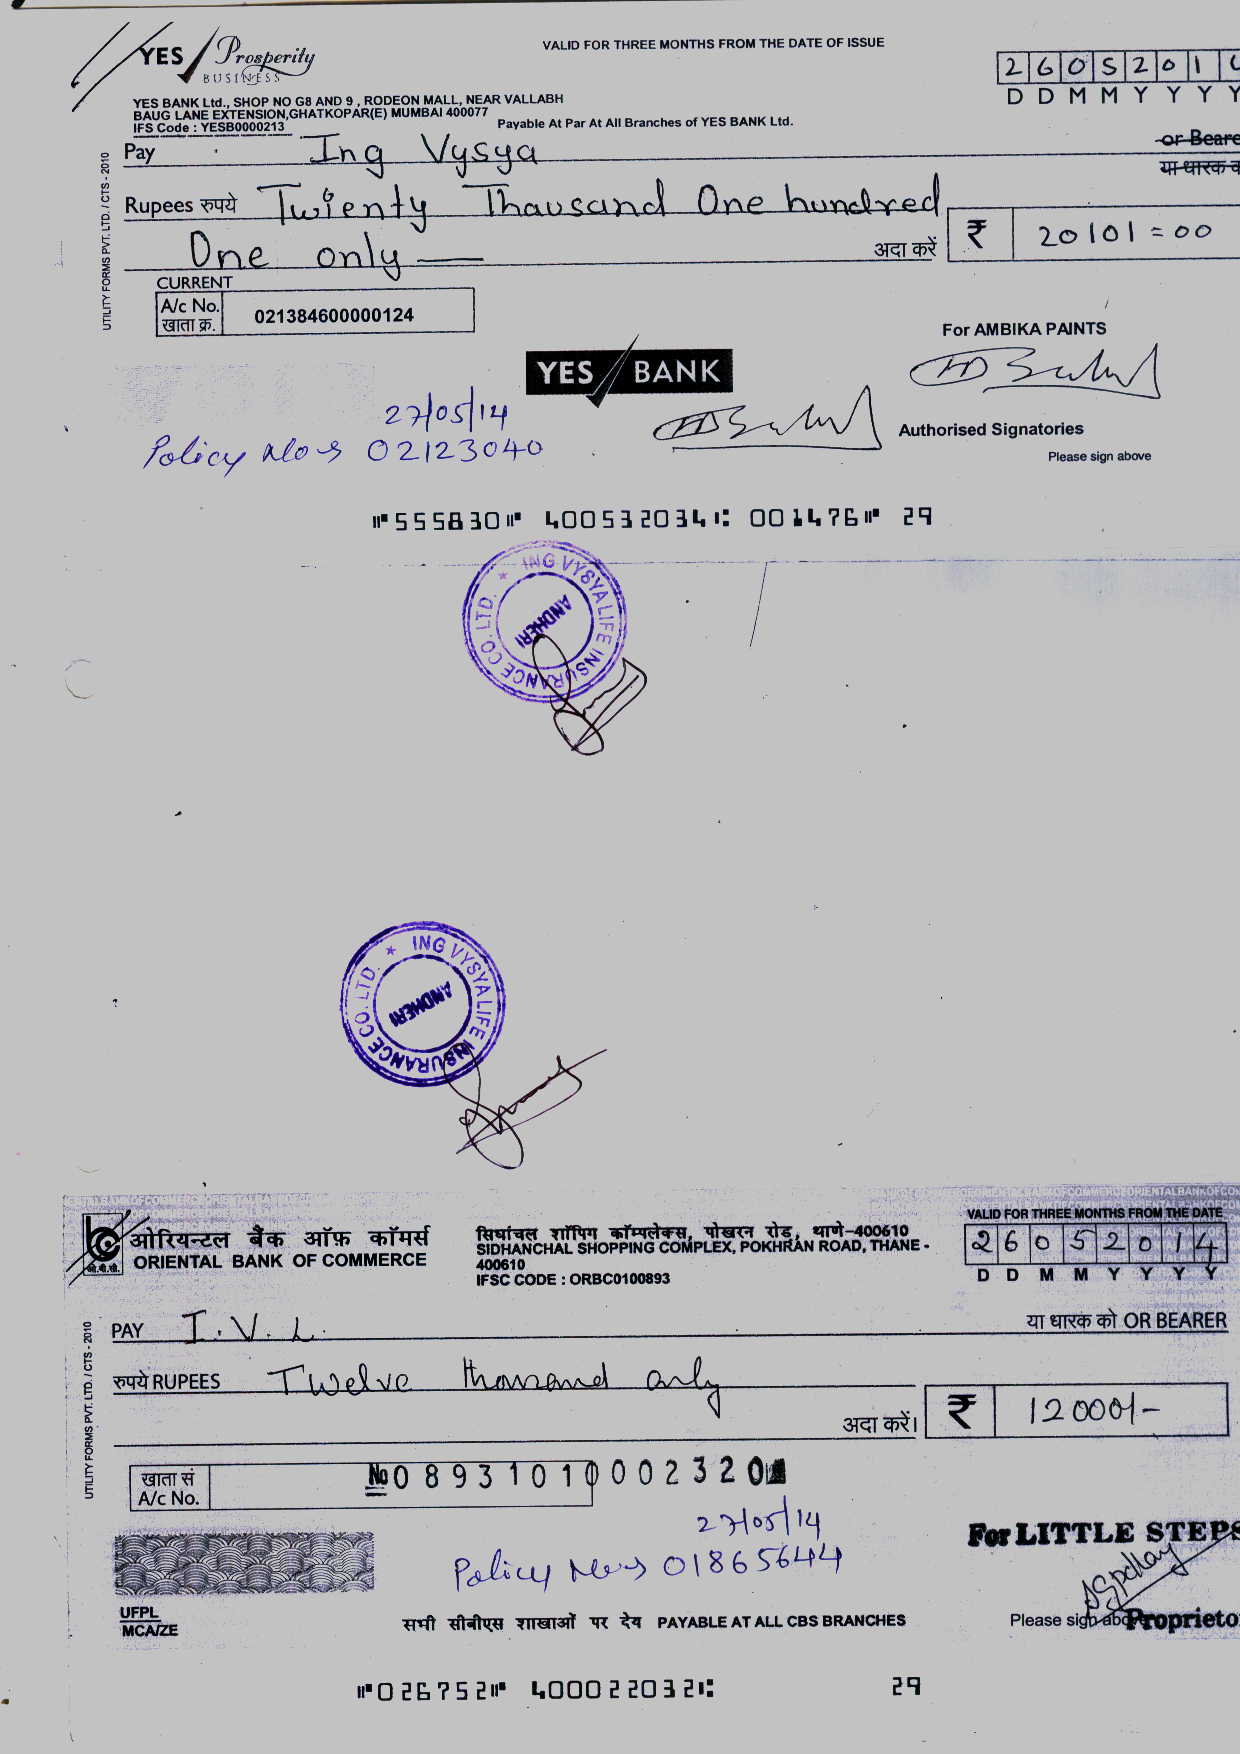 YES Prosperity
BUSINESS
VALID FOR THREE MONTHS FROM THE DATE OF ISSUE
2605201
D D M M Y Y Y Y
YES BANK Ltd., SHOP NO G8 AND 9 , RODEON MALL, NEAR VALLABH
BAUG LANE EXTENSION,GHATKOPAR(E) MUMBAI 400077
IFS Code : YESB0000213
Payable At Par At All Branches of YES BANK Ltd.
Pay Ing Vysya
or Beare
या धारक
Rupees रुपये Twienty Thausand One hundred
One only
अदा करें ₹ 20101=00
UTILITY FORMS PVT. LTD. / CTS - 2010
CURRENT
A/c No.
खाता क्र.
021384600000124
For AMBIKA PAINTS
YES BANK
27/05/14
Policy No 02123040
Authorised Signatories
Please sign above
⑈555830⑈ 400532034⑆ 001476⑈ 29
ING VYSYA LIFE INSURANCE CO. LTD. *
ANDHERI
ING VYSYA LIFE INSURANCE CO. LTD. *
ANDHERI
ओरियन्टल बैंक ऑफ़ कॉमर्स
ORIENTAL BANK OF COMMERCE
ओ.बी.सी.
सिधांचल शॉपिग कॉम्पलेक्स, पोखरन रोड, थाणे-400610
SIDHANCHAL SHOPPING COMPLEX, POKHRAN ROAD, THANE -
400610
IFSC CODE : ORBC0100893
VALID FOR THREE MONTHS FROM THE DATE
26052014
D D M M Y Y Y Y
PAY I.V.L.
या धारक को OR BEARER
रुपये RUPEES Twelve thousand only
अदा करें। ₹ 12000/-
UTILITY FORMS PVT. LTD. / CTS - 2010
खाता सं
A/c No.
No 08931010002320
27/05/14
Policy No 01865644
For LITTLE STEPS
UFPL
MCA/ZE
सभी सीबीएस शाखाओं पर देय PAYABLE AT ALL CBS BRANCHES
Please sign abo Proprieto
⑈026752⑈ 400022032⑆ 29